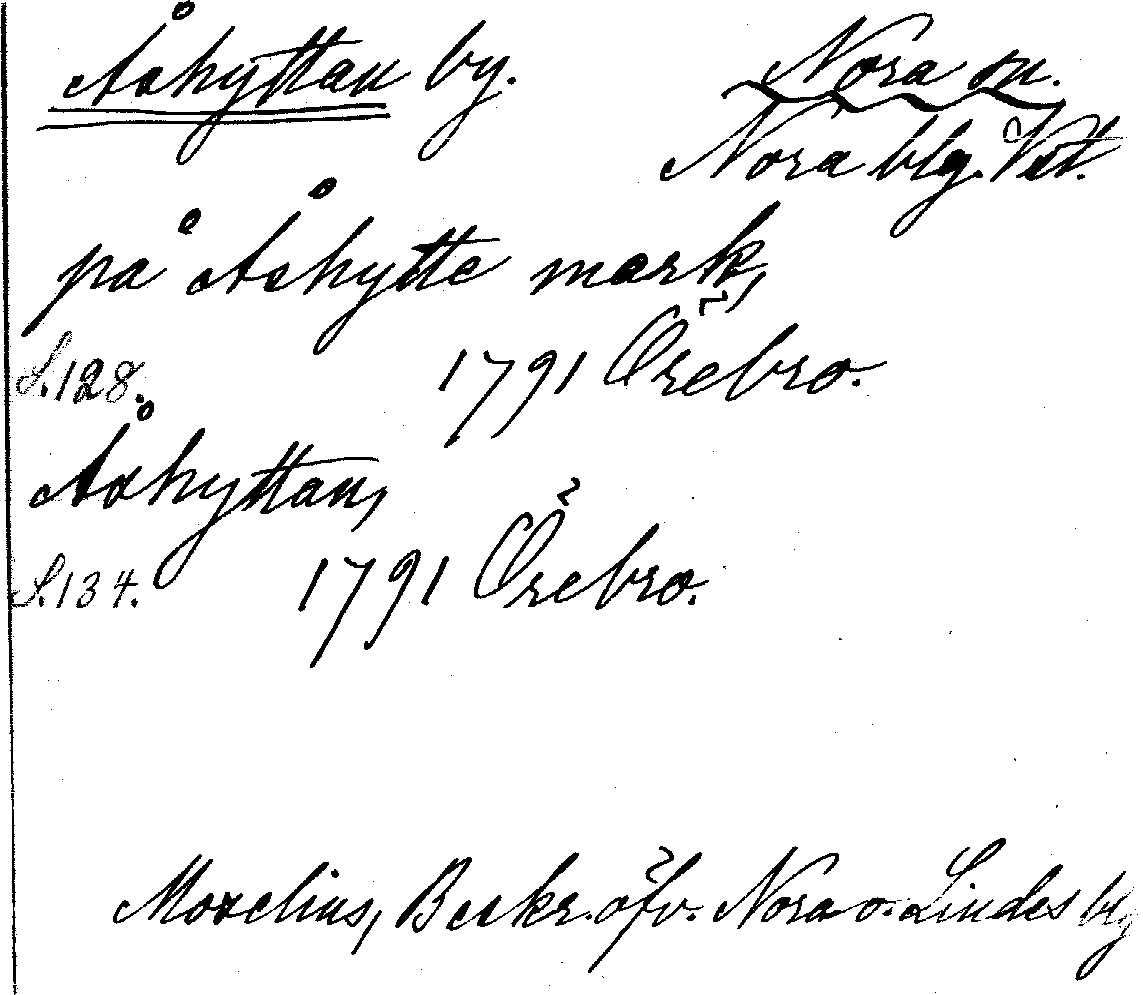 Åshyttan by. Nora sn.
Nora blg. Vstl.
på Åshytte mark,
S.128. 1791 Örebro.
Åshyttan,
S.134. 1791 Örebro.
Morelius, Beskr. öfv. Nora o. Lindes blg